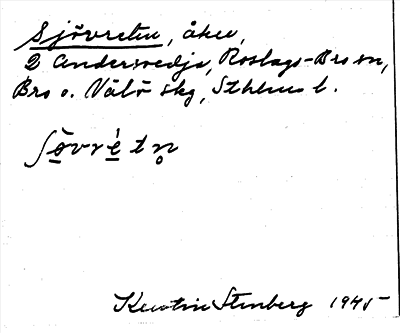 Sjövreten, åker,
2 Andersvedja, Roslags-Bro sn,
Bro o. Vätö skg, Sthlms l.
ʃövrétn̥
Kerstin Stenberg 1945